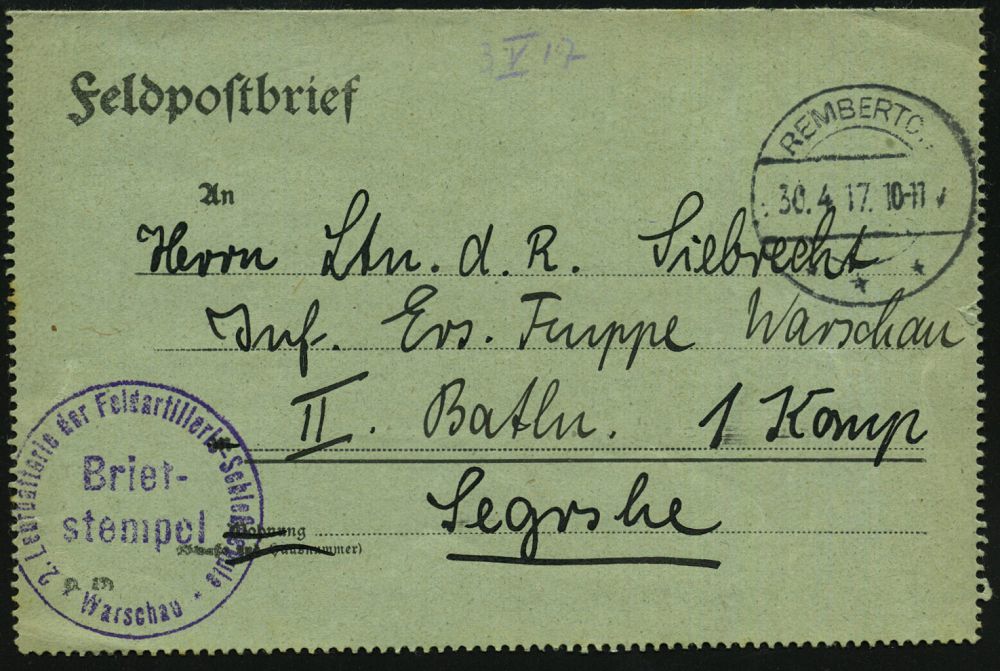 3 V 17
Feldpostbrief
REMBERTO
30.4.17. 10-11 V
An
Herrn Ltn. d. R. Siebrecht
Inf. Ers. Truppe Warschau
II. Batln. 1 Komp
Segrshe
Wohnung
(Straße und Hausnummer)
2. Lehrbatterie der Feldartillerie-Schießschule
Brief-
stempel
Warschau